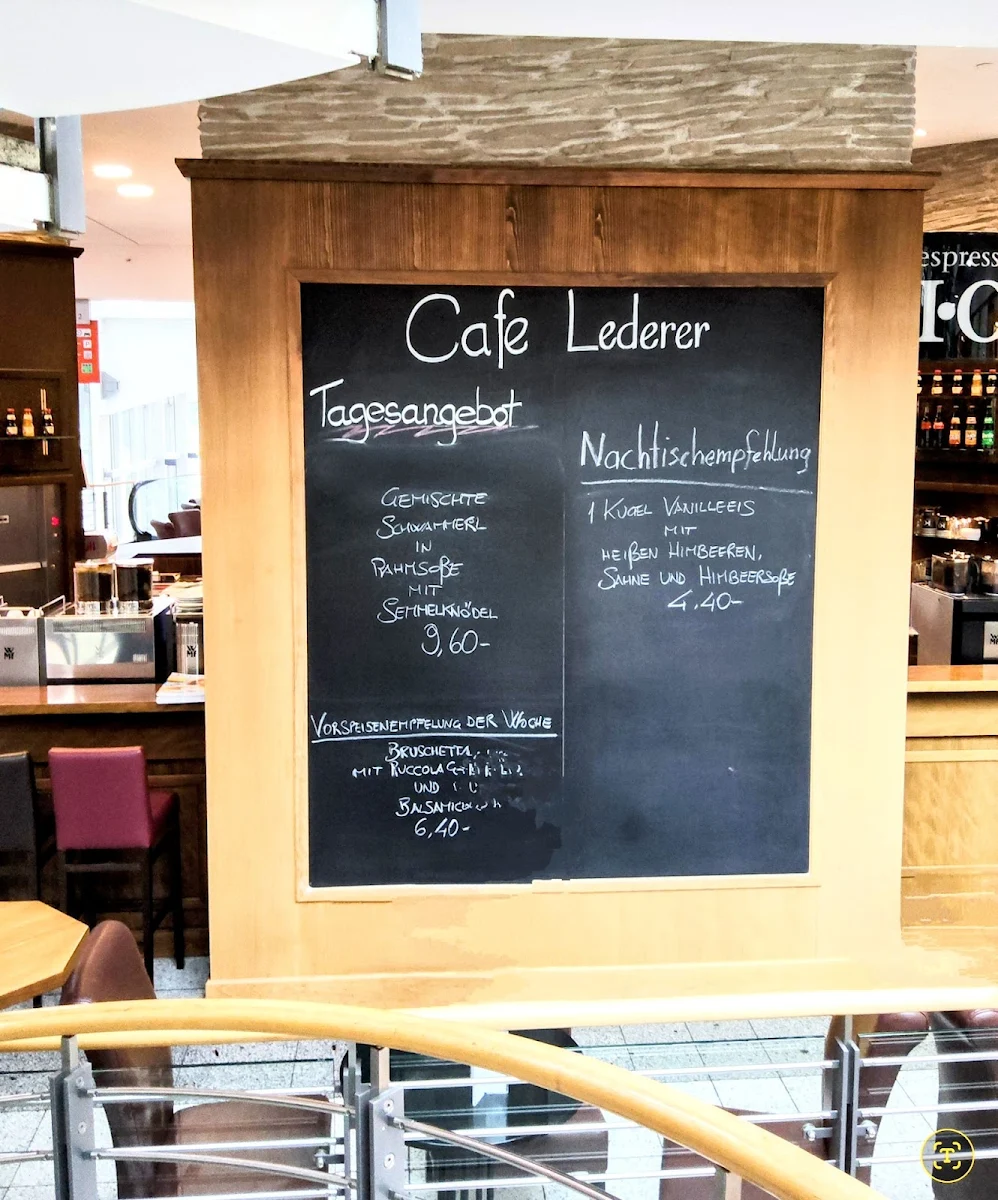 Cafe Lederer
Tagesangebot
GEMISCHTE
SCHWAMMERL
IN
RAHMSOßE
MIT
SEMMELKNÖDEL
9,60-
VORSPEISENEMPFELUNG DER WOCHE
BRUSCHETTA
MIT RUCCOLA
UND
6,40-
Nachtischempfehlung
1 KUGEL VANILLEEIS
MIT
HEIßEN HIMBEEREN,
SAHNE UND HIMBEERSOßE
4.40-
espress
I·C
WMF
WMF